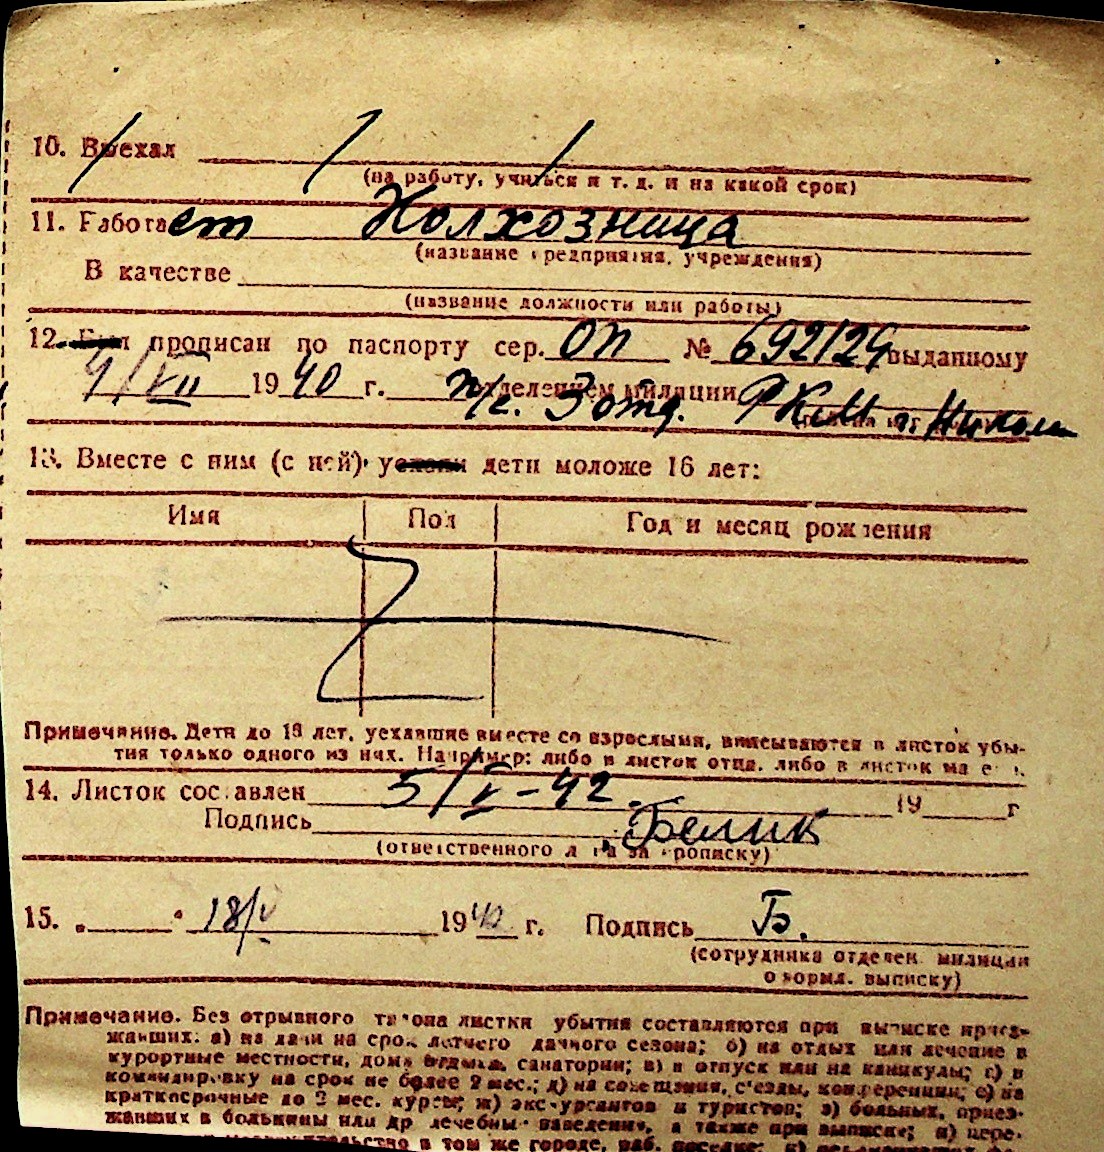 10. Выехал
(на работу, учиться и т. д. и на какой срок)
11. Работает Колхозница
(название предприятия, учреждения)
В качестве
(название должности или работы)
12. Был прописан по паспорту сер. ОП № 692129 выданному
9/VII 1940 г. п/с. 3 отд. отделением милиции РКМ г. Никол
13. Вместе с ним (с ней) уехали дети моложе 16 лет:
Имя Пол Год и месяц рождения
Примечание. Дети до 16 лет, уехавшие вместе со взрослыми, вписываются в листок убы-
тия только одного из них. Например: либо в листок отца, либо в листок матери.
14. Листок составлен 5/V-42. 19 г
Подпись Белик
(ответственного лица за прописку)
15. „ “ 18/V 1942 г. Подпись Б.
(сотрудника отделен. милиции
оформл. выписку)
Примечание. Без отрывного талона листки убытия составляются при выписке приез-
жавших: а) на дачи на срок летнего дачного сезона; б) на отдых или лечение в
курортные местности, дома отдыха, санатории; в) в отпуск или на каникулы; г) в
командировку на срок не более 2 мес.; д) на совещания, с'езды, конференции; е) на
краткосрочные до 2 мес. курсы; ж) экскурсантов и туристов; з) больных, приез-
жавших в больницы или др лечебные заведения, а также при выписке; и) пере-
в том же городе, раб. поселке;